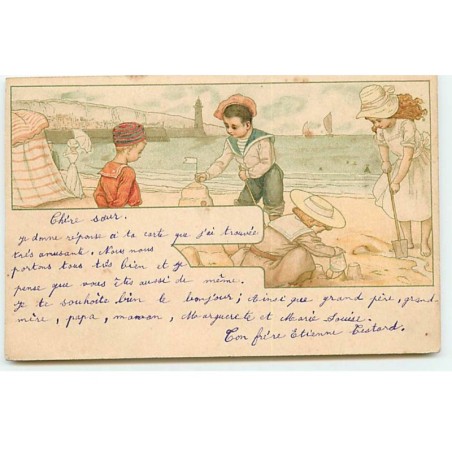 Chère sœur.
je donne réponse à la carte que j'ai trouvée
très amusante. Nous nous
portons tous très bien et je
pense que vous êtes aussi de même.
Je te souhaite bien le bonjour; Ainsi que grand père, grand
mère, papa, maman, Marguerete et Marie Louise.
Ton frère Etienne Testard.